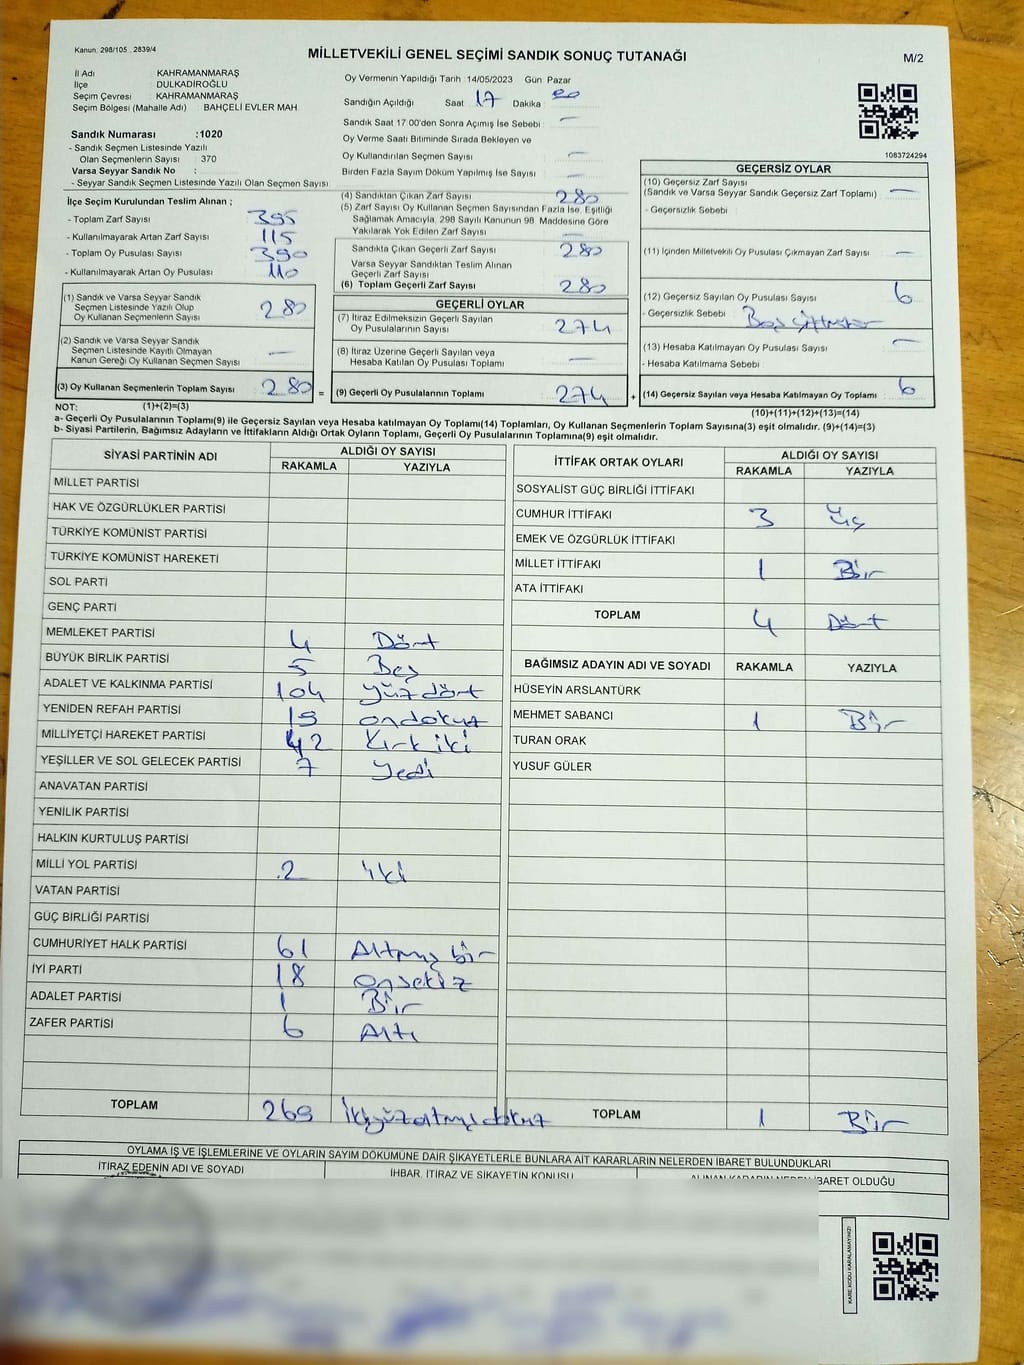 Kanun. 298/105 , 2839/4
MİLLETVEKİLİ GENEL SEÇİMİ SANDIK SONUÇ TUTANAĞI
M/2
İl Adı KAHRAMANMARAŞ
İlçe DULKADİROĞLU
Seçim Çevresi KAHRAMANMARAŞ
Seçim Bölgesi (Mahalle Adı) BAHÇELİ EVLER MAH.
Sandık Numarası :1020
- Sandık Seçmen Listesinde Yazılı
Olan Seçmenlerin Sayısı : 370
Varsa Seyyar Sandık No :
- Seyyar Sandık Seçmen Listesinde Yazılı Olan Seçmen Sayısı
Oy Vermenin Yapıldığı Tarih : 14/05/2023 Gün: Pazar
Sandığın Açıldığı Saat 17 Dakika 00
Sandık Saat 17.00'den Sonra Açımış İse Sebebi : —
Oy Verme Saati Bitiminde Sırada Bekleyen ve
Oy Kullandırılan Seçmen Sayısı —
Birden Fazla Sayım Döküm Yapılmış İse Sayısı : —
1083724294
İlçe Seçim Kurulundan Teslim Alınan ;
- Toplam Zarf Sayısı 395
- Kullanılmayarak Artan Zarf Sayısı 115
- Toplam Oy Pusulası Sayısı 390
- Kullanılmayarak Artan Oy Pusulası 110
(1) Sandık ve Varsa Seyyar Sandık
Seçmen Listesinde Yazılı Olup
Oy Kullanan Seçmenlerin Sayısı 280
(2) Sandık ve Varsa Seyyar Sandık
Seçmen Listesinde Kayıtlı Olmayan
Kanun Gereği Oy Kullanan Seçmen Sayısı —
(3) Oy Kullanan Seçmenlerin Toplam Sayısı 280 =
(4) Sandıktan Çıkan Zarf Sayısı 280
(5) Zarf Sayısı Oy Kullanan Seçmen Sayısından Fazla İse, Eşitliği
Sağlamak Amacıyla, 298 Sayılı Kanunun 98. Maddesine Göre
Yakılarak Yok Edilen Zarf Sayısı —
Sandıkta Çıkan Geçerli Zarf Sayısı 280
Varsa Seyyar Sandıktan Teslim Alınan
Geçerli Zarf Sayısı
(6) Toplam Geçerli Zarf Sayısı 280
GEÇERLİ OYLAR
(7) İtiraz Edilmeksizin Geçerli Sayılan
Oy Pusulalarının Sayısı 274
(8) İtiraz Üzerine Geçerli Sayılan veya
Hesaba Katılan Oy Pusulası Toplamı —
(9) Geçerli Oy Pusulalarının Toplamı 274 +
GEÇERSİZ OYLAR
(10) Geçersiz Zarf Sayısı
(Sandık ve Varsa Seyyar Sandık Geçersiz Zarf Toplamı) —
- Geçersizlik Sebebi :
(11) İçinden Milletvekili Oy Pusulası Çıkmayan Zarf Sayısı —
(12) Geçersiz Sayılan Oy Pusulası Sayısı 6
- Geçersizlik Sebebi :
(13) Hesaba Katılmayan Oy Pusulası Sayısı —
- Hesaba Katılmama Sebebi :
(14) Geçersiz Sayılan veya Hesaba Katılmayan Oy Toplamı 6
NOT: (1)+(2)=(3)
(10)+(11)+(12)+(13)=(14)
a- Geçerli Oy Pusulalarının Toplamı(9) ile Geçersiz Sayılan veya Hesaba katılmayan Oy Toplamı(14) Toplamları, Oy Kullanan Seçmenlerin Toplam Sayısına(3) eşit olmalıdır. (9)+(14)=(3)
b- Siyasi Partilerin, Bağımsız Adayların ve İttifakların Aldığı Ortak Oyların Toplamı, Geçerli Oy Pusulalarının Toplamına(9) eşit olmalıdır.
SİYASİ PARTİNİN ADI ALDIĞI OY SAYISI
RAKAMLA YAZIYLA
MİLLET PARTİSİ
HAK VE ÖZGÜRLÜKLER PARTİSİ
TÜRKİYE KOMÜNİST PARTİSİ
TÜRKİYE KOMÜNİST HAREKETİ
SOL PARTİ
GENÇ PARTİ
MEMLEKET PARTİSİ 4 Dört
BÜYÜK BİRLİK PARTİSİ 5 Beş
ADALET VE KALKINMA PARTİSİ 104 yüz dört
YENİDEN REFAH PARTİSİ 19 ondokuz
MİLLİYETÇİ HAREKET PARTİSİ 42 Kırk iki
YEŞİLLER VE SOL GELECEK PARTİSİ 7 Yedi
ANAVATAN PARTİSİ
YENİLİK PARTİSİ
HALKIN KURTULUŞ PARTİSİ
MİLLİ YOL PARTİSİ 2 iki
VATAN PARTİSİ
GÜÇ BİRLİĞİ PARTİSİ
CUMHURİYET HALK PARTİSİ 61 Altmış bir
İYİ PARTİ 18 onsekiz
ADALET PARTİSİ 1 Bir
ZAFER PARTİSİ 6 Altı
TOPLAM 269 ikiyüzaltmışdokuz
İTTİFAK ORTAK OYLARI ALDIĞI OY SAYISI
RAKAMLA YAZIYLA
SOSYALİST GÜÇ BİRLİĞİ İTTİFAKI
CUMHUR İTTİFAKI 3 Üç
EMEK VE ÖZGÜRLÜK İTTİFAKI
MİLLET İTTİFAKI 1 Bir
ATA İTTİFAKI
TOPLAM 4 Dört
BAĞIMSIZ ADAYIN ADI VE SOYADI RAKAMLA YAZIYLA
HÜSEYİN ARSLANTÜRK
MEHMET SABANCI 1 Bir
TURAN ORAK
YUSUF GÜLER
TOPLAM 1 Bir
OYLAMA İŞ VE İŞLEMLERİNE VE OYLARIN SAYIM DÖKÜMÜNE DAİR ŞİKAYETLERLE BUNLARA AİT KARARLARIN NELERDEN İBARET BULUNDUKLARI
İTİRAZ EDENİN ADI VE SOYADI
İHBAR, İTİRAZ VE ŞİKAYETİN KONUSU
ALINAN KARARIN NEDEN İBARET OLDUĞU
KARE KODU KARALAMAYINIZ!